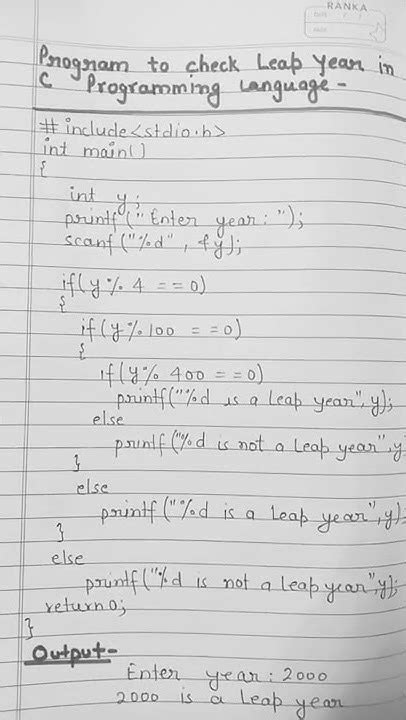 RANKA
DATE
PAGE
Program to check Leap Year in
C Programming Language -
#include<stdio.h>
int main()
{
int y;
printf("Enter year: ");
scanf("%d", &y);
if(y% 4 == 0)
{
if(y%100 == 0)
{
if(y% 400 == 0)
printf("%d is a leap year", y);
else
printf("%d is not a leap year", y
}
else
printf("%d is a leap year", y)
}
else
printf("%d is not a leap year", y);
return 0;
}
Output-
Enter year: 2000
2000 is a leap year